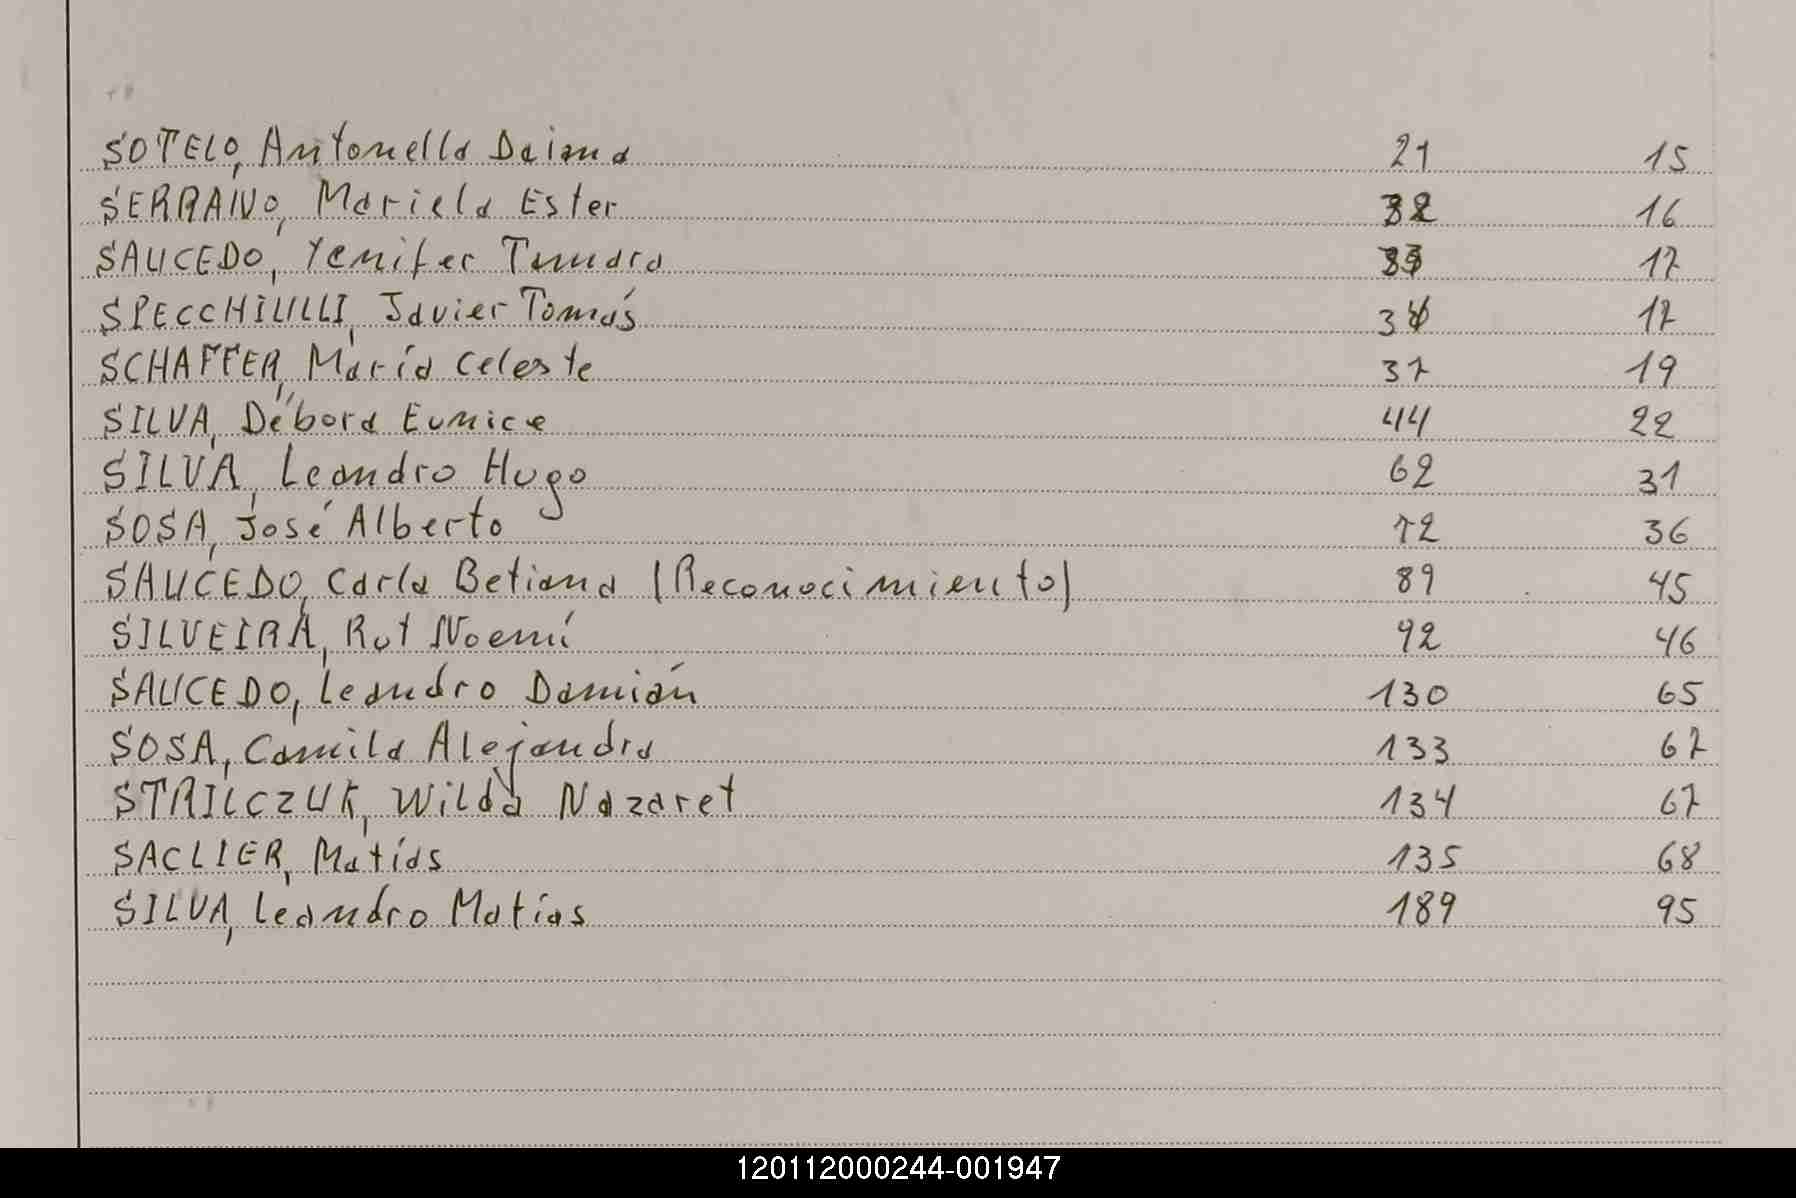 SOTELO, Antonella Daiana 21 15
SERRANO, Mariela Ester 32 16
SAUCEDO, Yenifer Tamara 33 17
SPECCHIULLI, Javier Tomás 34 17
SCHAFFER, María Celeste 37 19
SILVA, Débora Eunice 44 22
SILVA, Leandro Hugo 62 31
SOSA, José Alberto 72 36
SAUCEDO, Carla Betiana (Reconocimiento) 89 45
SILVEIRA, Rut Noemí 92 46
SAUCEDO, Leandro Damián 130 65
SOSA, Camila Alejandra 133 67
STRILCZUK, Wilda Nazaret 134 67
SACLIER, Matías 135 68
SILVA, Leandro Matías 189 95
120112000244-001947